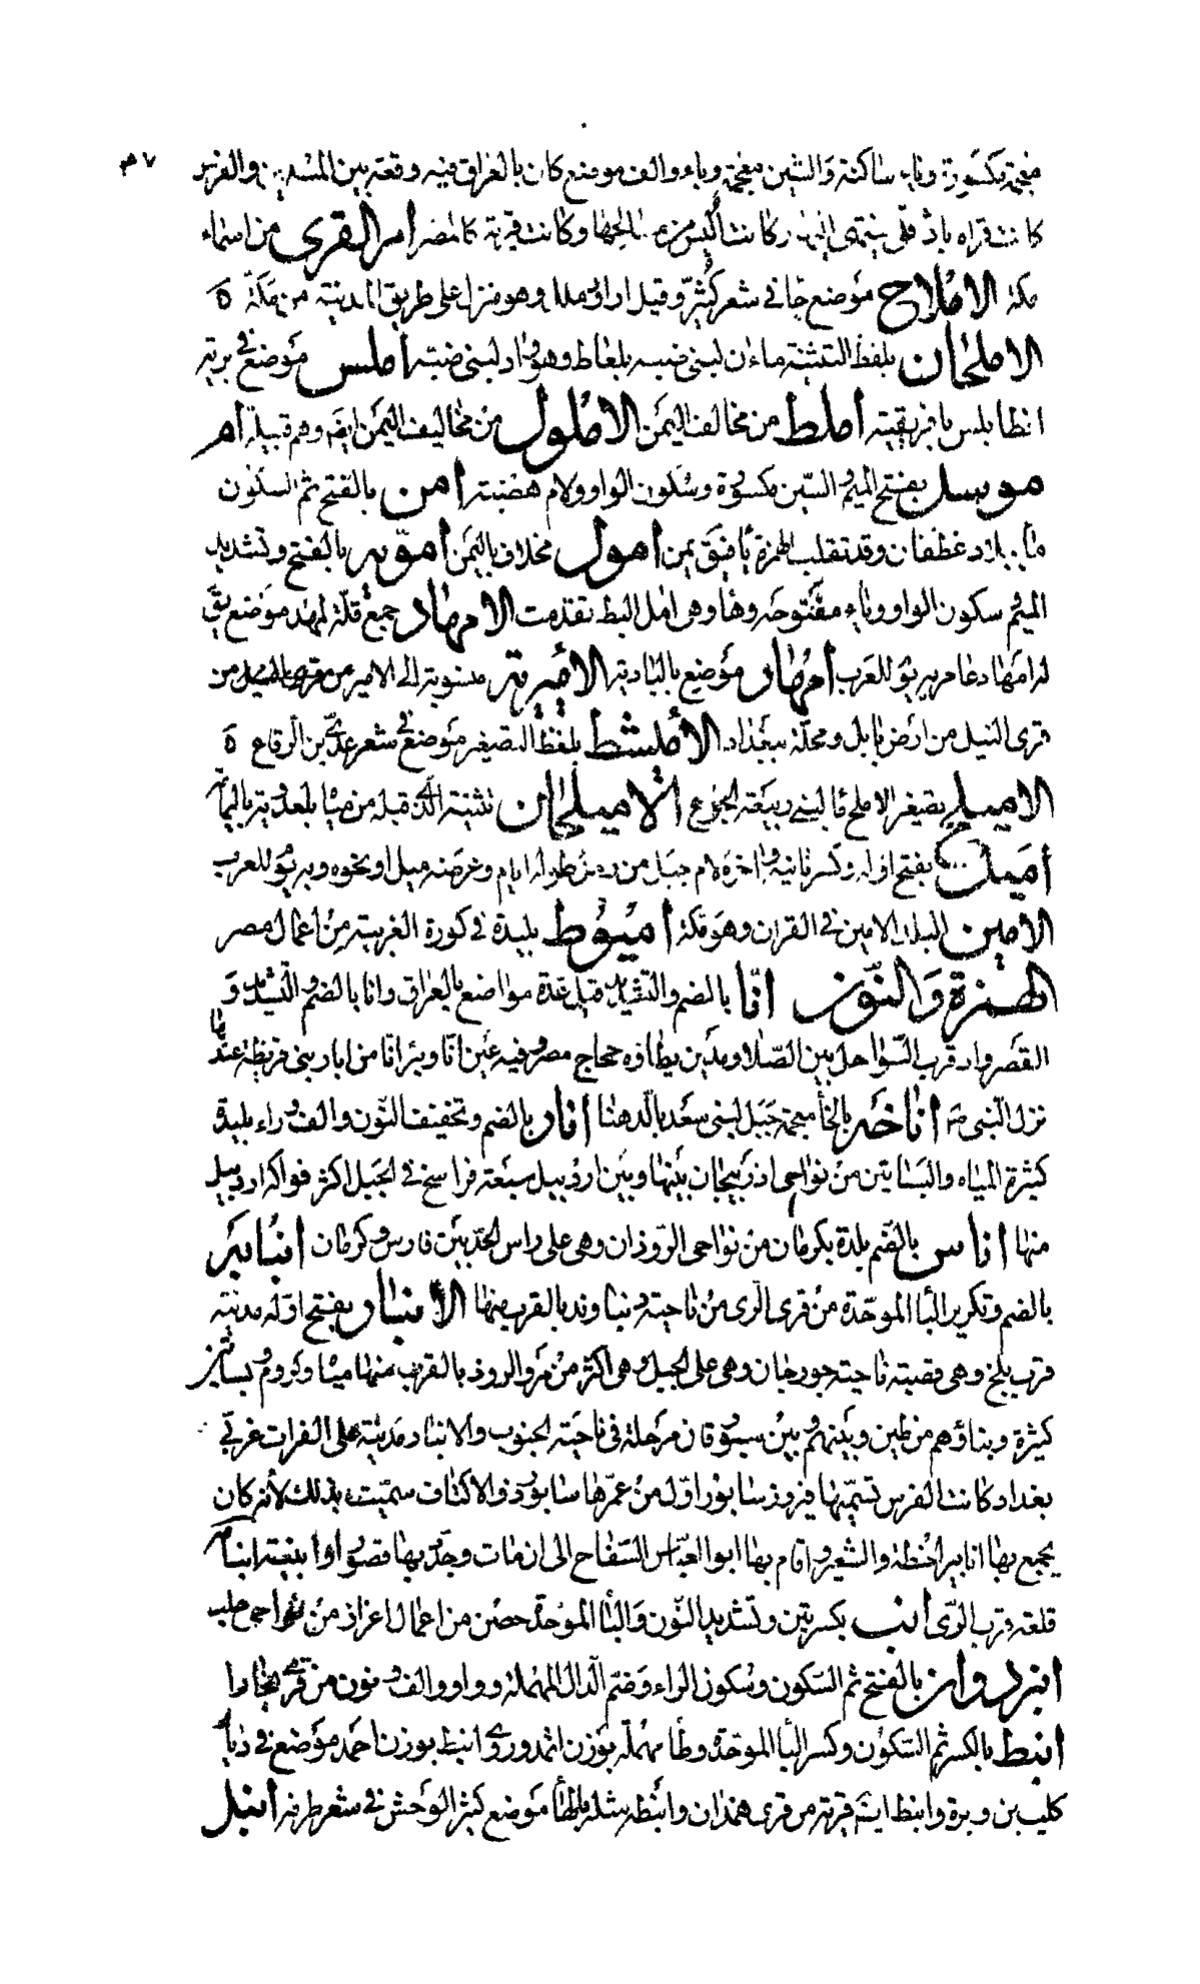 معجمة مكسورة وياء ساكنة والشين معجمة وباء والف موضع كان بالعراق فيه وقعة بين المسلمين والفرس
كانت قراه باذقلى ينتمى اليها وكانت أليس من الجها وكانت قرية كالمصر امر القرى من اسماء
مكة الاملاح موضع جا فى شعر كثيّر وقيل اراد مللا وهو منزل على طريق المدينة من مكة ه
الاملحان بلفظ التثنية ماءان لبنى ضبة بلغاط وهو واد لبنى ضبة املس موضع فى برية
انطابلس بافريقية املط من مخالف اليمن الاملول من مخاليف اليمن ايضا وهم قبيلة ام
موسل بفتح الميم والسّين مكسورة وسكون الواو ولام هضبة امن بالفتح ثم السكون
ما ببلاد غطفان وقد تقلب الهمزة يا فيق يمن امول مخلاف باليمن امّويه بالفتح وتشديد
الميم سكون الواو وياء مفتوحه وها وهى امل الشط تقدمت الامهاد جمع قلة لمهد موضع يق
له امهاد عامر بير للعرب امهار موضع بالبادية الاميرية منسوبة الى الامير من قرى النيل من
قرى النيل من ارض بابل ومحلة ببغداد الأميشط بلفظ التصغير موضع فى شعر عدى بن الرقاع ه
الاميلح تصغير الاملح ما لبنى ربيعة الجوع الاميلحان تثنية الذى قبله من مياه بلعدوية باليمامة
اميل بفتح اوله وكسر ثانيه واخره لام جبل من رمل طوله ايام وعرضه ميل او نحوه وبه يوم للعرب
الامين البلد الامين فى القران وهو مكة اميوط بليدة فى كورة الغربية من اعمال مصر
الهمزة والنّون انّا بالضم والتشديد قيل عدة مواضع بالعراق وانا بالضم والتشديد و
القصر واد قرب السّواحل بين الصّلا ومدين يطاؤه حجاج مصر وفيه عين انّا وبئر انّا من ابار بنى قريظة عندها
نزل النّبى صم اناخه بالخأ معجمة جبل لبنى سعد بالدهنا انار بالضم وتخفيف النّون والف وراء بليدة
كثيرة المياه والبساتين من نواحى اذربيجان بينها وبين اردبيل سبعة فراسخ فى الجبل اكثر فواكه اردبيل
منها اناس بالضم بلدة بكرمان من نواحى الرّوذان وهى على راس الحدّ بين فارس وكرمان انبابة
بالضم وتكرير البأ الموحّدة من قرى الرى من ناحية دنباوند بالقرب منها الأنبار بفتح اوّله مدينة
قرب بلخ وهى قصبة ناحية جورجان وهى على الجبل وهى اكثر من مرو الروذ بالقرب منها مياه وكروم وبساتين
كثيرة وبناؤهم من طين وبينهم وبين سبورقان مرحلة فى ناحية الجنوب والانبار مدينة على الفرات غربى
بغداد كانت الفرس تسمّيها فيروز سابور اوّل من عمّرها سابور ذو الاكتاف سميّت بذلك لأنه كان
يجمع بها انابير الحنطة والشعير واقام بها ابو العبّاس السفّاح الى ان مات وجدّد بها قصورا وابنية انبامه
قلعة قرب الرّى انب بكسرتين وتشديد النّون والبأ الموحدّة حصن من اعمال اعزاز من نواحى حلب
انبردوان بالفتح ثم السّكون وسكون الراء وضم الدال المهملة وواو والف ونون من قرى بخارا
انبط بالكسر ثم السّكون وكسر البا الموحدّة وطأ مهملة بوزن اثمد وروى انبط بوزن احمد موضع فى ديار
كليب بن وبرة وانبط ايضا قرية من قرى همذان وانبطه مثله بالهأ موضع كثير الوحش فى شعر طرفه انبل